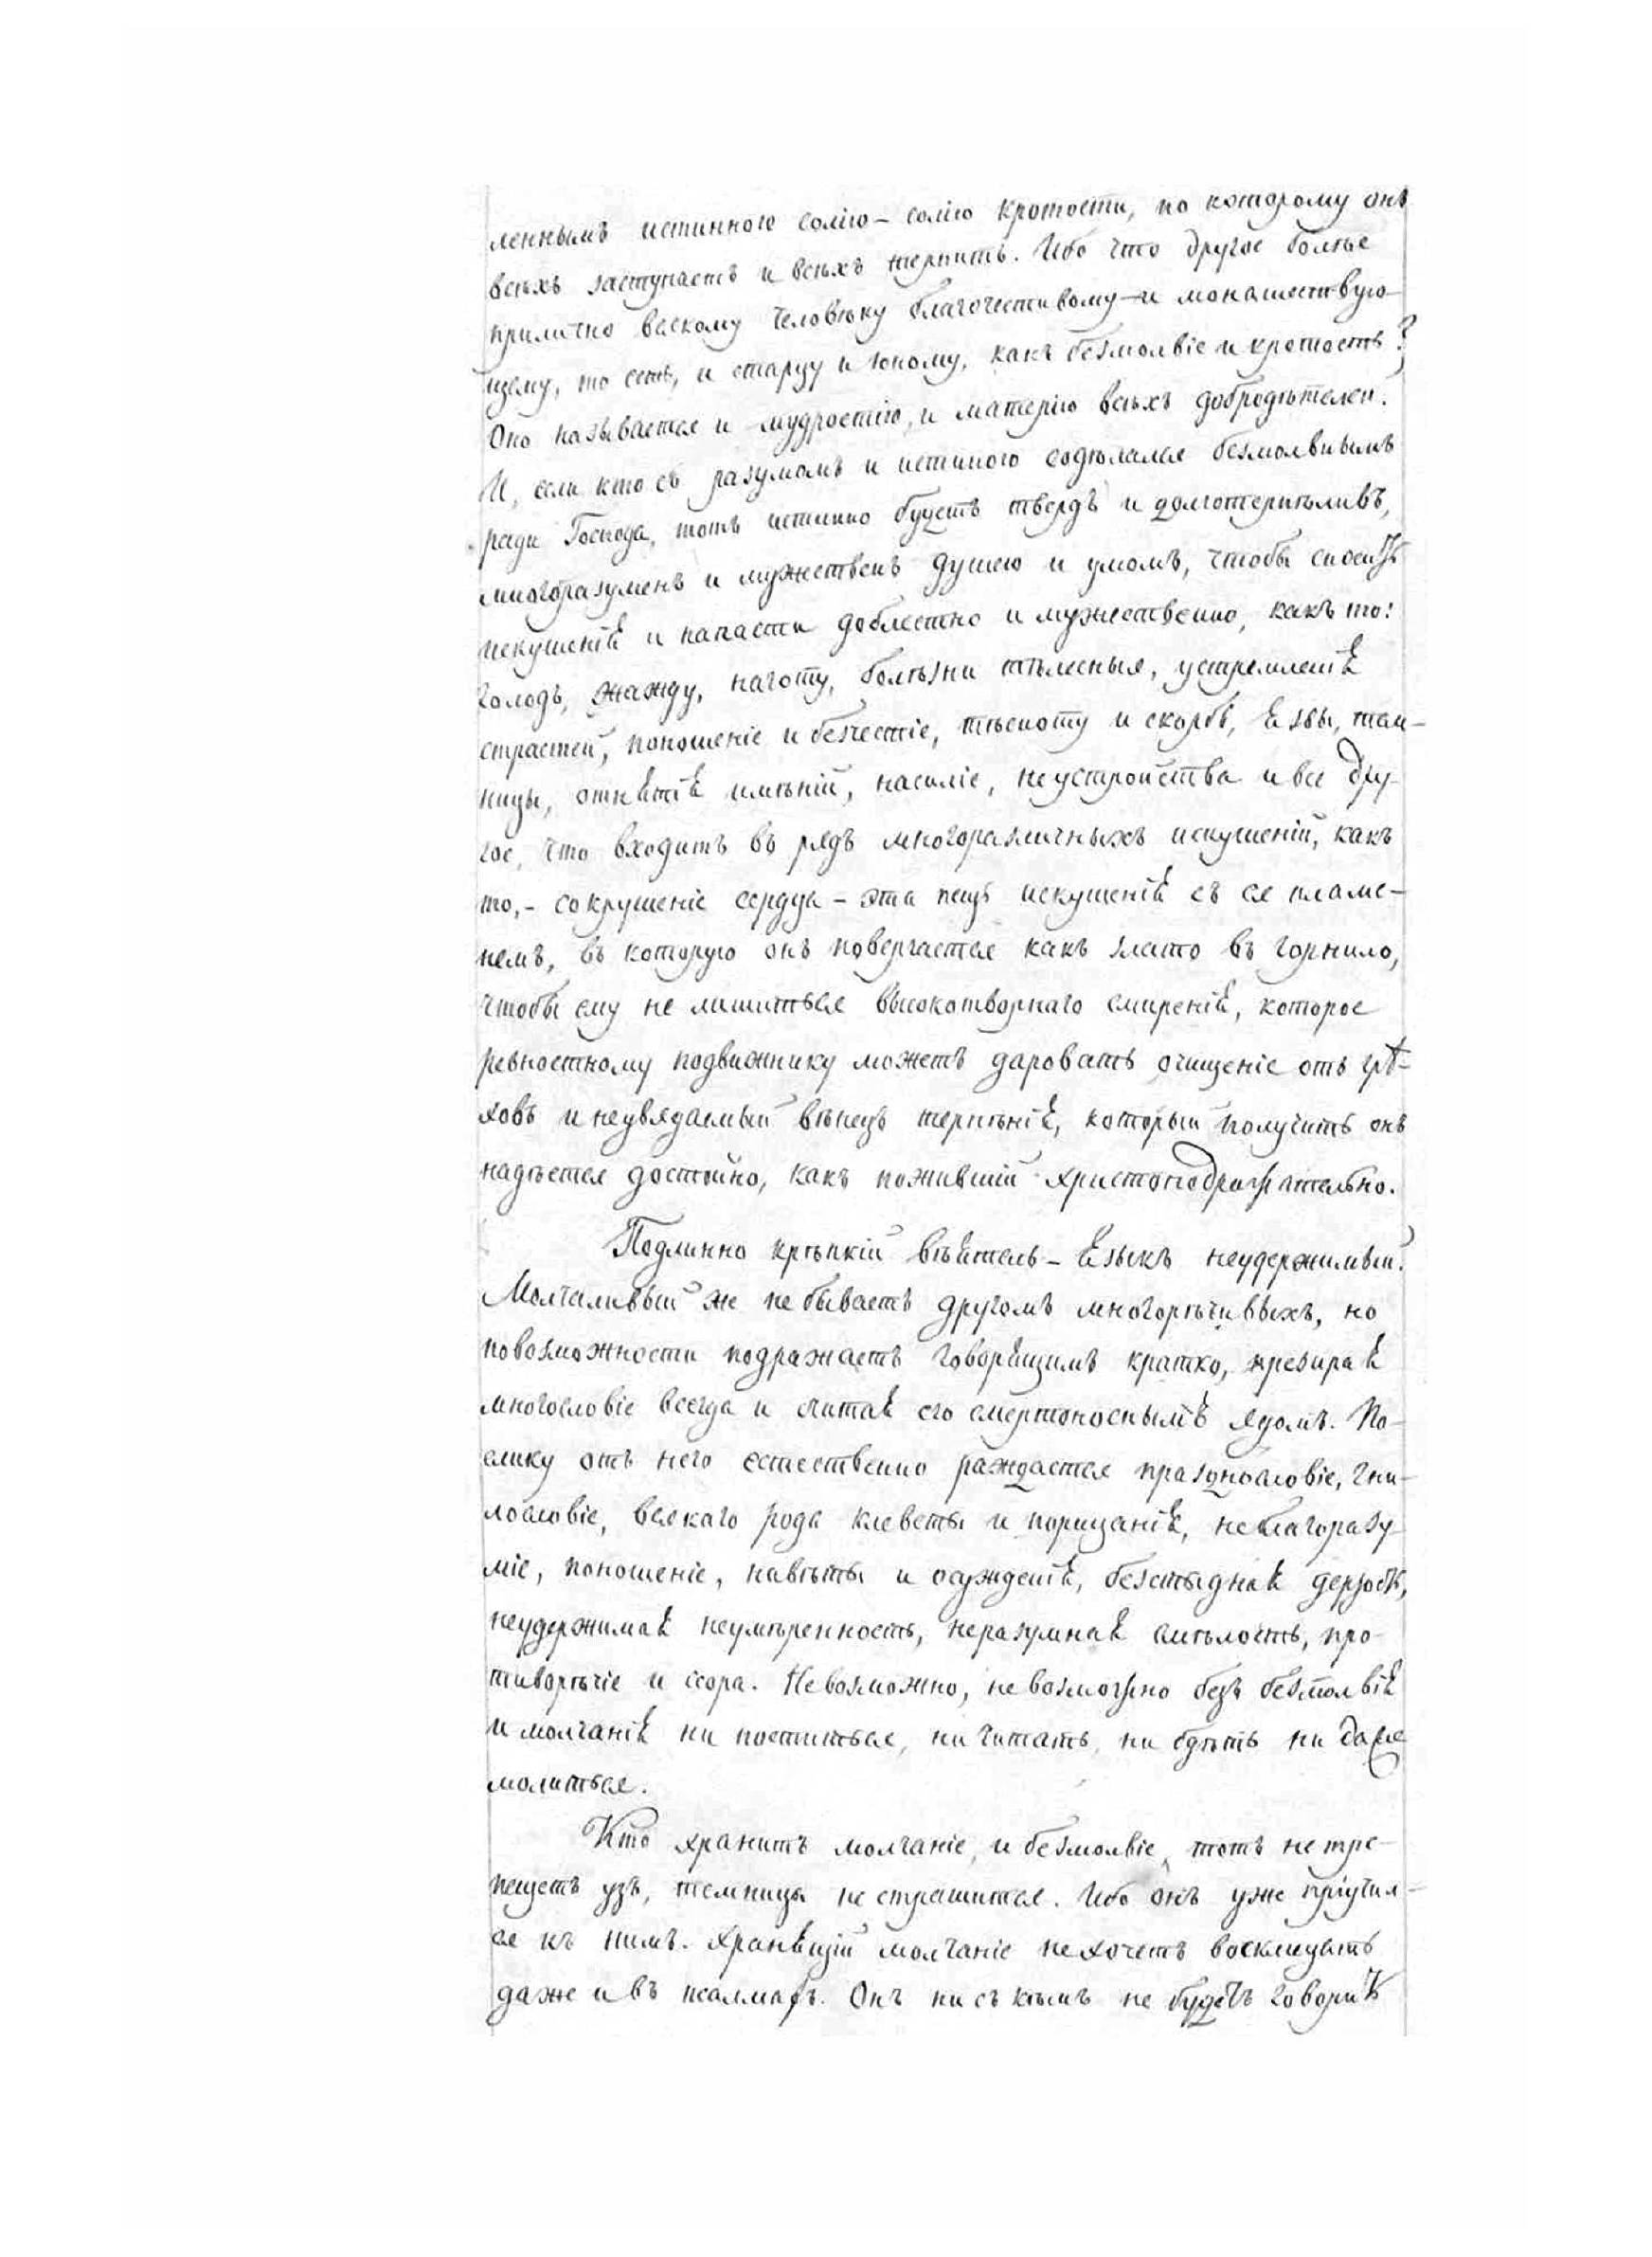 леннымъ истинною солію – солію кротости, по которому онъ
всѣхъ заступаетъ и всѣхъ терпитъ. Ибо что другое болѣе
прилично всякому человѣку благочестивому – и монашествую-
щему, то есть, и старцу и юному, какъ безмолвіе и кротость?
Оно называется и мудростію, и матерію всѣхъ добродѣтелей.
И, если кто съ разумомъ и истиною содѣлался безмолвнымъ
ради Господа, тотъ истинно будетъ твердъ и долготерпѣливъ,
многоразуменъ и мужественъ душею и умомъ, чтобы сносить
искушенія и напасти доблестно и мужественно, какъ то:
голодъ, жажду, наготу, болѣзни тѣлесныя, устремленія
страстей, поношеніе и безчестіе, тѣсноту и скорбь, язвы, тем-
ницы, отнятія имѣній, насиліе, неустройства и все дру-
гое, что входитъ въ рядъ многоразличныхъ искушеній, какъ
то, – сокрушеніе сердца – эта пещь искушенія съ ея пламе-
немъ, въ которую онъ повергается какъ злато въ горнило,
чтобы ему не лишиться высокотворнаго смиренія, которое
ревностному подвижнику можетъ даровать очищеніе отъ грѣ-
ховъ и неувядаемый вѣнецъ терпѣнія, который получить онъ
надѣется достойно, какъ пожившій христоподражательно.
Подлинно крѣпкій вѣятель – языкъ неудержимый.
Молчаливый же не бываетъ другомъ многорѣчивыхъ, но
повозможности подражаетъ говорящимъ кратко, презирая
многословіе всегда и считая его смертоноснымъ ядомъ. По-
елику отъ него естественно раждается празднословіе, гни-
лословіе, всякаго рода клеветы и порицанія, неблагоразу-
міе, поношеніе, навѣты и осужденія, безстыдная дерзость,
неудержимая неумѣренность, неразумная смѣлость, про-
тиворѣчіе и ссора. Невозможно, невозможно безъ безмолвія
и молчанія ни поститься, ни читать, ни бдѣть ни даже
молиться.
Кто хранитъ молчаніе, и безмолвіе, тотъ не тре-
пещетъ узъ, темницы не страшится. Ибо онъ уже пріучил-
ся къ нимъ. Хранящій молчаніе не хочетъ восклицать
даже и въ псалмахъ. Онъ ни съ кѣмъ не будетъ говорить